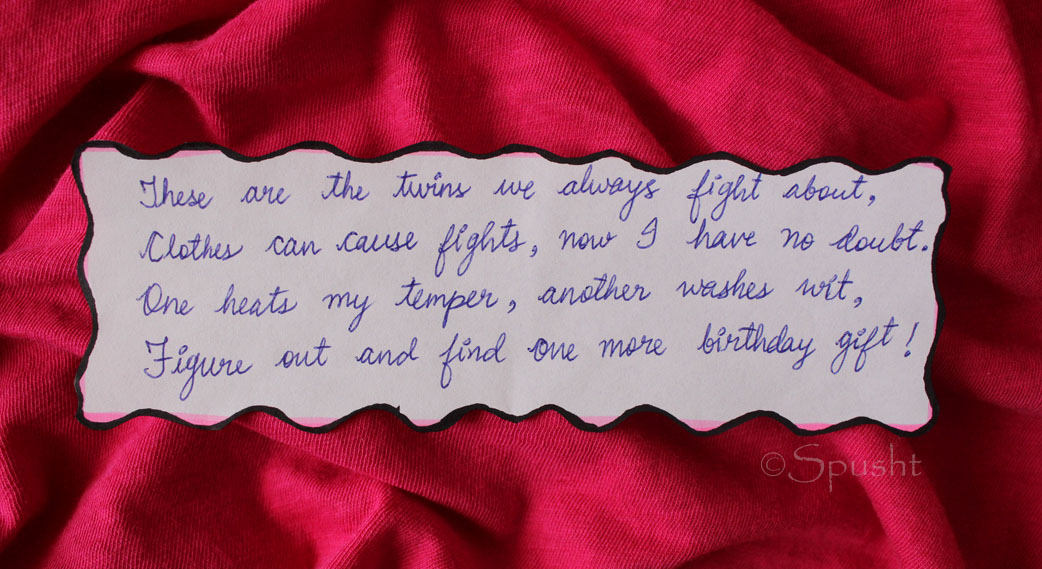 These are the twins we always fight about,
Clothes can cause fights, now I have no doubt.
One heats my temper, another washes wit,
Figure out and find one more birthday gift!
©Spusht